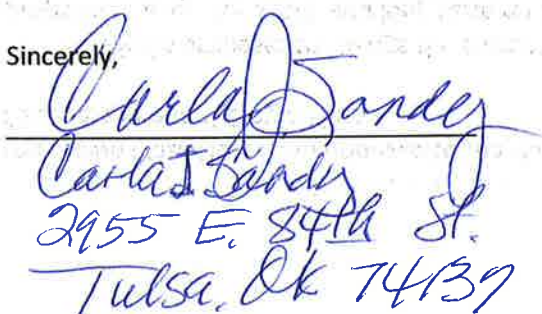 Sincerely,
Carla J Sandy
Carla J Sandy
2955 E. 84th St.
Tulsa, Ok 74137